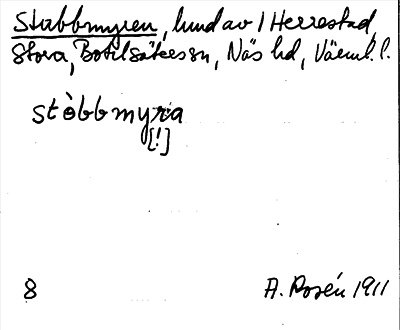 Stubbmyren, hund av 1 Herrestad,
Stora, Botilsäters sn, Näs hd, Värml. l.
stòbbmyra
[!]
8
A. Rosén 1911